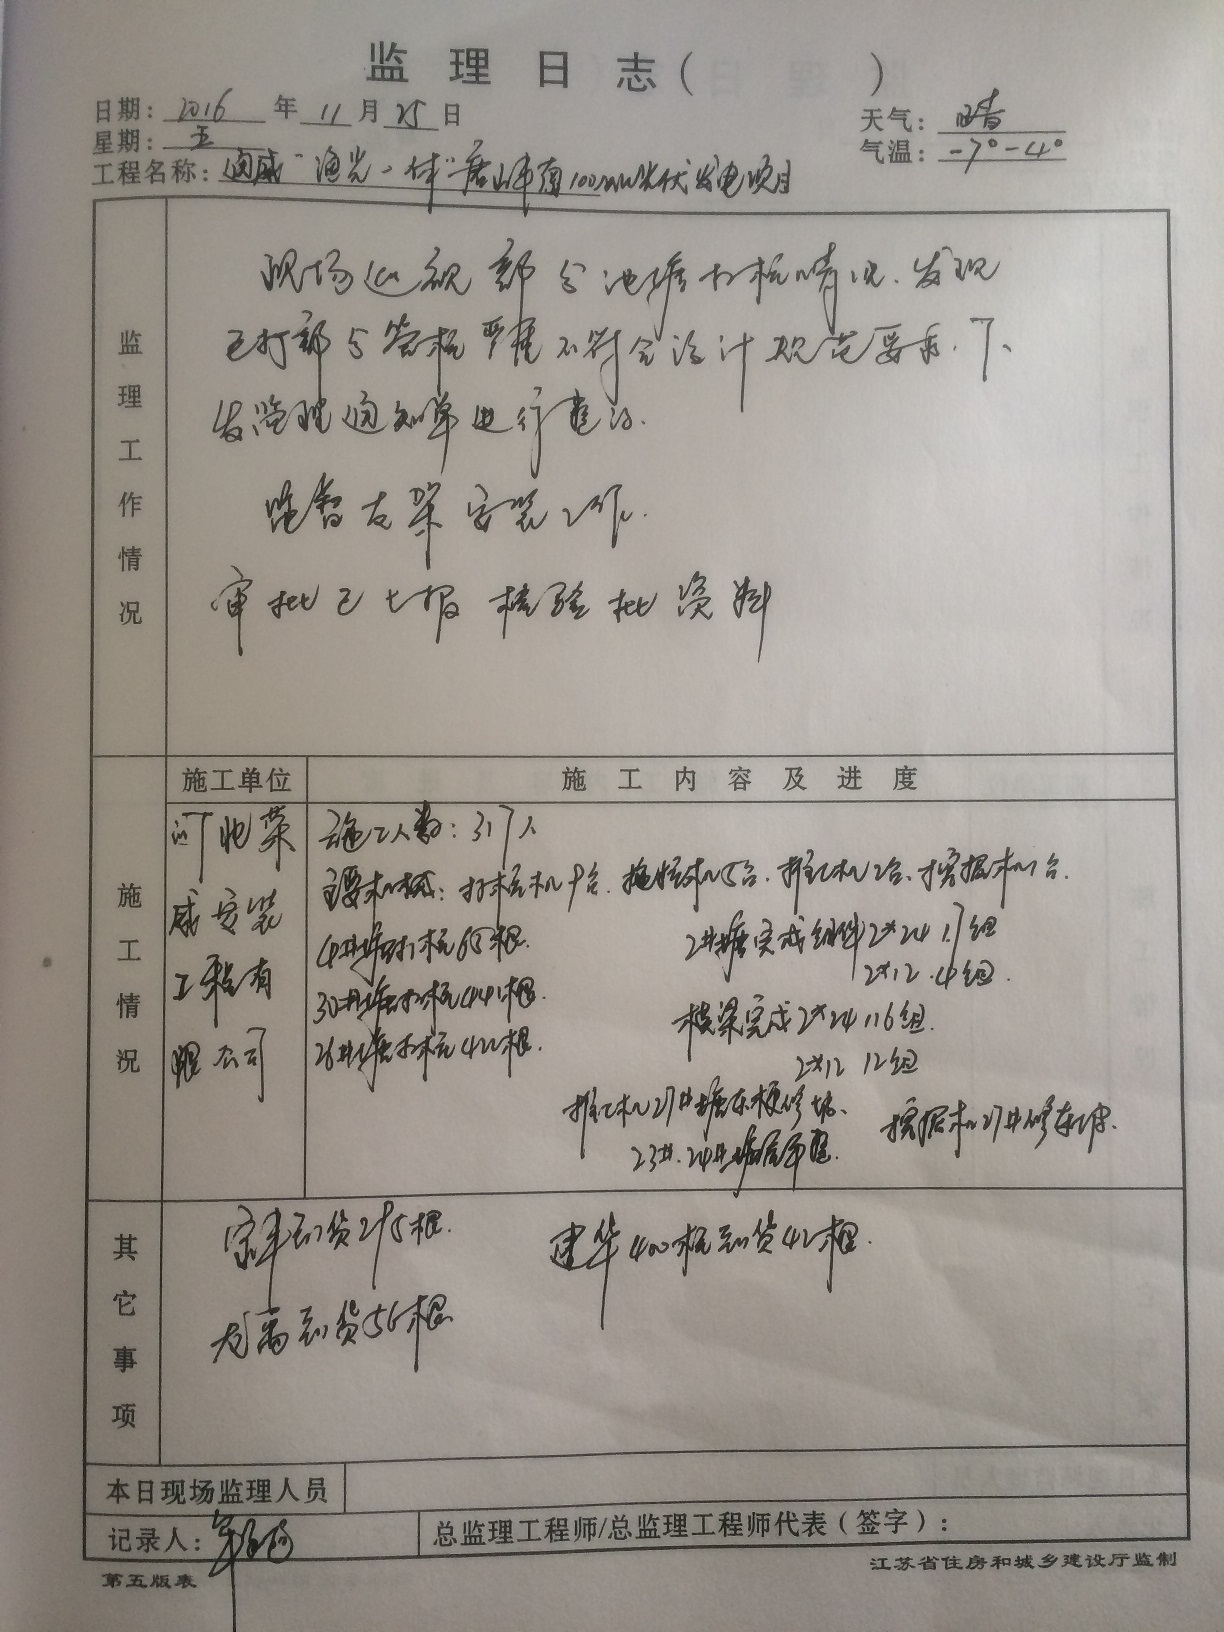 监理日志( )
日期: 2016 年 11 月 25 日
天气: 晴
星期: 五
气温: -7°-4°
工程名称: 通威"渔光一体"唐山丰南100MW光伏发电项目
监理工作情况
现场巡视部分池塘打桩情况.发现
已打部分管桩严重不符合设计规范要求.下
发监理通知单进行整改.
监督支架安装工作.
审批已上报检验批资料
施工情况
施工单位
施工内容及进度
河北荣
威安装
工程有
限公司
施工人数: 317人
主要机械: 打桩机9台. 拖拉机5台. 推土机2台. 挖掘机1台.
4#塘打桩65根.
2#塘完成组件2*24 17组
2*12 4组.
30#塘打桩441根.
檩梁完成2*24 16组.
26#塘打桩422根.
2*12 12组
推土机27#塘东埂修坡.
挖掘机27#修东坡.
23#.24#塘底平整.
其它事项
到货295根.
建华400桩到货42根.
到货56根
本日现场监理人员
记录人:
总监理工程师/总监理工程师代表(签字):
第五版表
江苏省住房和城乡建设厅监制